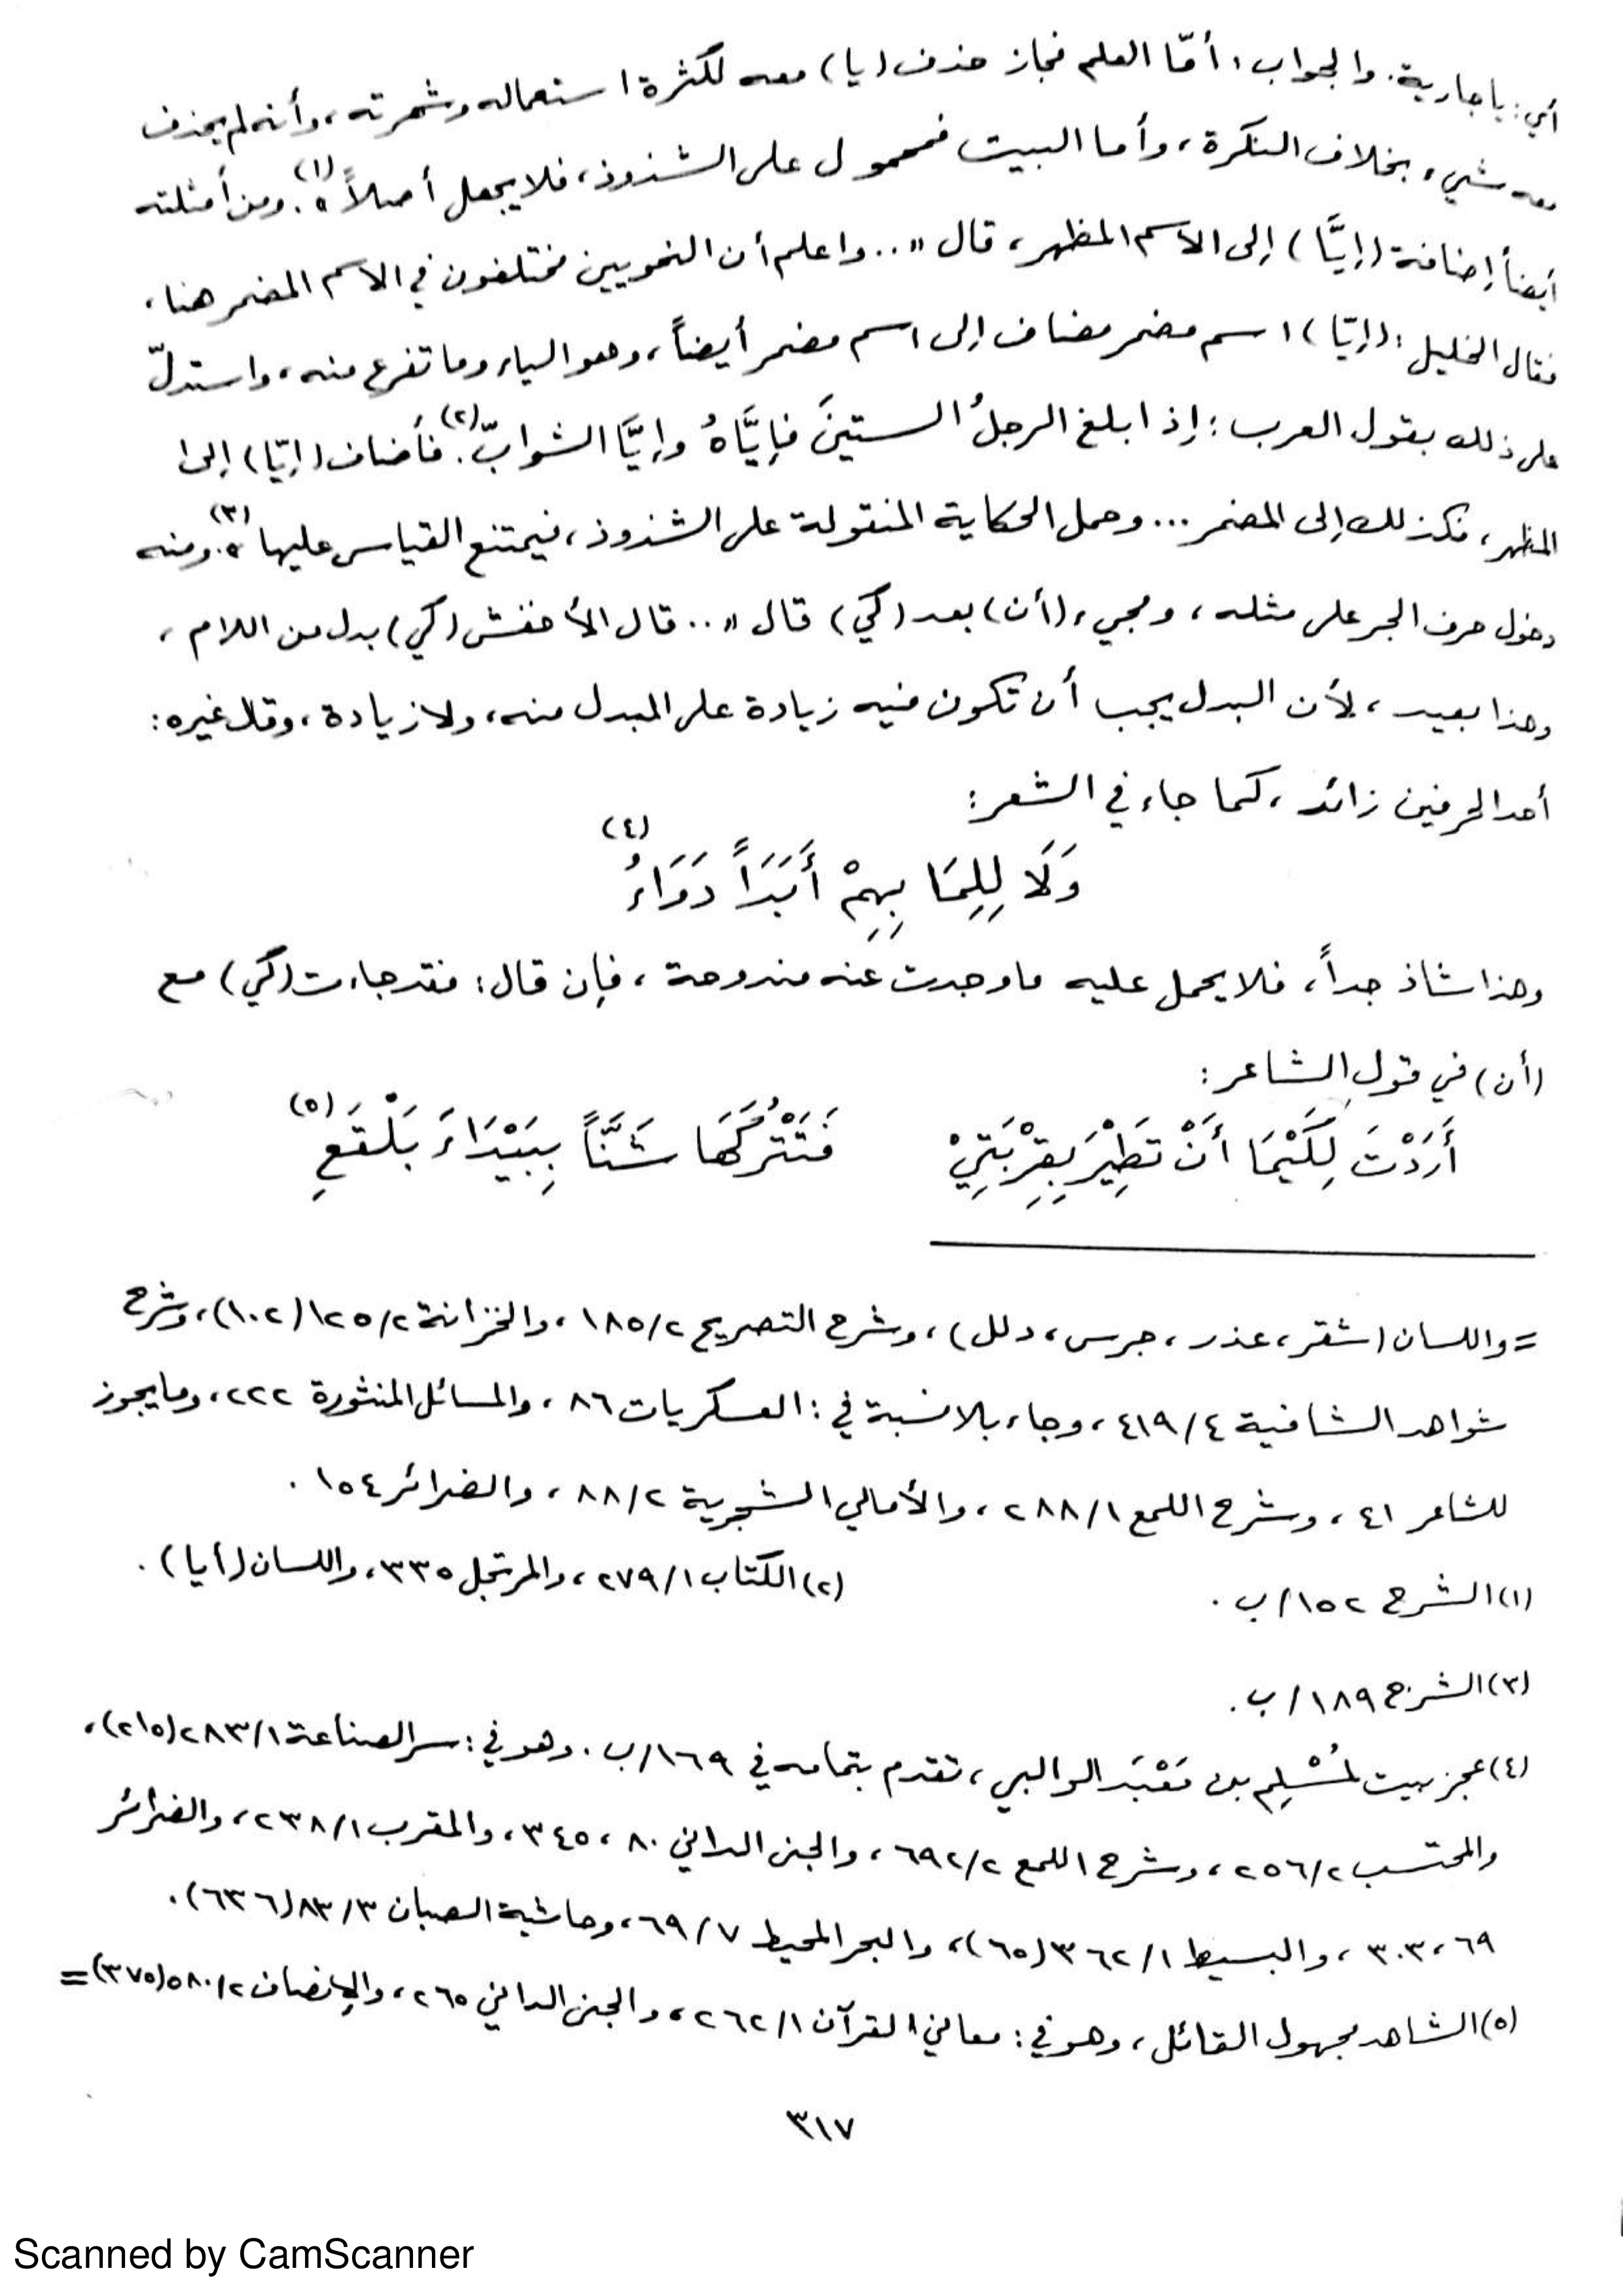 أي: يا جارية. والجواب: أمّا العلم فجاز حذف (يا) معه لكثرة استعماله وشهرته، وأنه لم يحذف
معه شيء، بخلاف النكرة، وأما البيت فمحمول على الشذوذ، فلا يجعل أصلاً»(١). ومن أمثلته
أيضاً إضافة (إيَّا) إلى الاسم المظهر، قال «.. واعلم أن النحويين مختلفون في الاسم المضمر هنا،
فقال الخليل: (إيّا) اسم مضمر مضاف إلى اسم مضمر أيضاً، وهو الياء وما تفرع منه، واستدلّ
على ذلك بقول العرب: إذا بلغ الرجلُ الستينَ فإيَّاهُ وإيَّا الشوابّ(٢). فأضاف (إيّا) إلى
المظهر، فكذلك إلى المضمر... وحمل الحكاية المنقولة على الشذوذ، فيمتنع القياس عليها»(٣). ومنه
دخول حرف الجر على مثله، ومجيء (أن) بعد (كي) قال «.. قال الأخفش (كي) بدل من اللام،
وهذا بعيد، لأن البدل يجب أن تكون فيه زيادة على المبدل منه، ولا زيادة، وقال غيره:
أحد الحرفين زائد، كما جاء في الشعر:
وَلَا لِلِمَا بِهِمْ أَبَدَاً دَوَاءُ(٤)
وهذا شاذ جداً، فلا يحمل عليه ما وجدت عنه مندوحة، فإن قال: فقد جاءت (كي) مع
(أن) في قول الشاعر:
أَرَدْتَ لِكَيْمَا أَنْ تَطِيْرَ بِقِرْبَتِيْ فَتَتْرُكَهَا شَنَّاً بِبَيْدَاءَ بَلْقَعِ(٥)
= واللسان (شقر، عذر، جرس، دلل)، وشرح التصريح ١٨٥/٢، والخزانة ١٢٥/٢(١٠٢)، وشرح
شواهد الشافية ٤١٩/٤، وجاء بلا نسبة في: العسكريات ٨٦، والمسائل المنثورة ٢٢٢، وما يجوز
للشاعر ٤١، وشرح اللمع ٢٨٨/١، والأمالي الشجرية ٨٨/٢، والضرائر ١٥٤.
(١) الشرح ١٥٢/ب. (٢) الكتاب ٢٧٩/١، والمرتجل ٣٣٥، واللسان (أيا).
(٣) الشرح ١٨٩/ب.
(٤) عجز بيت لمُسْلِم بن مَعْبَد الوالبي، تقدم بتمامه في ١٦٩/ب. وهو في: سر الصناعة ٢٨٣/١(٢١٥)،
والمحتسب ٢٥٦/٢، وشرح اللمع ٦٩٢/٢، والجنى الداني ٨٠، ٣٤٥، والمقرب ٢٣٨/١، والضرائر
٦٩، ٣٠٣، والبسيط ٣٦٢/١(٦٥)، والبحر المحيط ٦٩/٧، وحاشية الصبان ٨٣/٣(٦٣٦).
(٥) الشاهد مجهول القائل، وهو في: معاني القرآن ٢٦٢/١، والجنى الداني ٢٦٥، والإنصاف ٥٨٠/٢(٣٧٥)=
٣١٧
Scanned by CamScanner